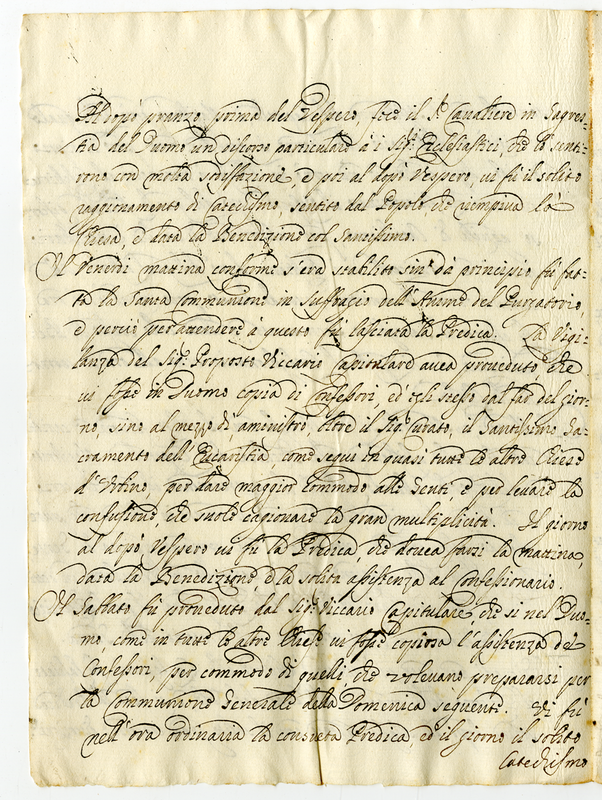 Al dopò pranzo prima del Vespero, fece il Sr. Cavaliere in Sagres-
tia del Duomo un discorso particulare à i Sigri. Eclesiastici, che lo senti-
rono con molta sodisfazione, e poi al dopò Vespero, vi fù il solito
raggionamento di Catechismo, sentito dal Popolo che riempiva la
Chiesa, e data la Benedizione col Santissimo.
Il Venerdì mattina conforme s'era stabilito sin' da principio fù fat-
ta la Santa Communione in suffragio dell'Anime del Purgatorio,
e perciò per attendere à questo fù lasciata la Predica. La Vigi-
lanza del Sigr. Proposto Viccario Capitulare avea proveduto che
vi fosse in Duomo copia di Confessori, ed egli stesso dal far del gior-
no, sino al mezzo dì, aministrò, oltre il Sigr. Curato, il Santissimo Sa-
cramento dell'Eucaristia, come seguì in quasi tutte le altre Chiese
d'Urbino, per dare maggior commodo alle Genti, e per levare la
confusione, che suole cagionare la gran multiplicità. Il giorno
al dopò Vespero vi fù la Predica, che dovea farsi la mattina,
data la Benedizione, e la solita assistenza al Confessionario.
Il Sabbato fù proveduto dal Sigr. Viccario Capitulare, che si nel Duo-
mo, come in tutte le altre Chiese vi fosse copiosa l'assistenza de
Confessori, per commodo di quelli, che volevano prepararsi per
la Communione Generale della Domenica seguente. Vi fù
nell'ora ordinaria la consueta Predica, ed il giorno il solito
Catechismo